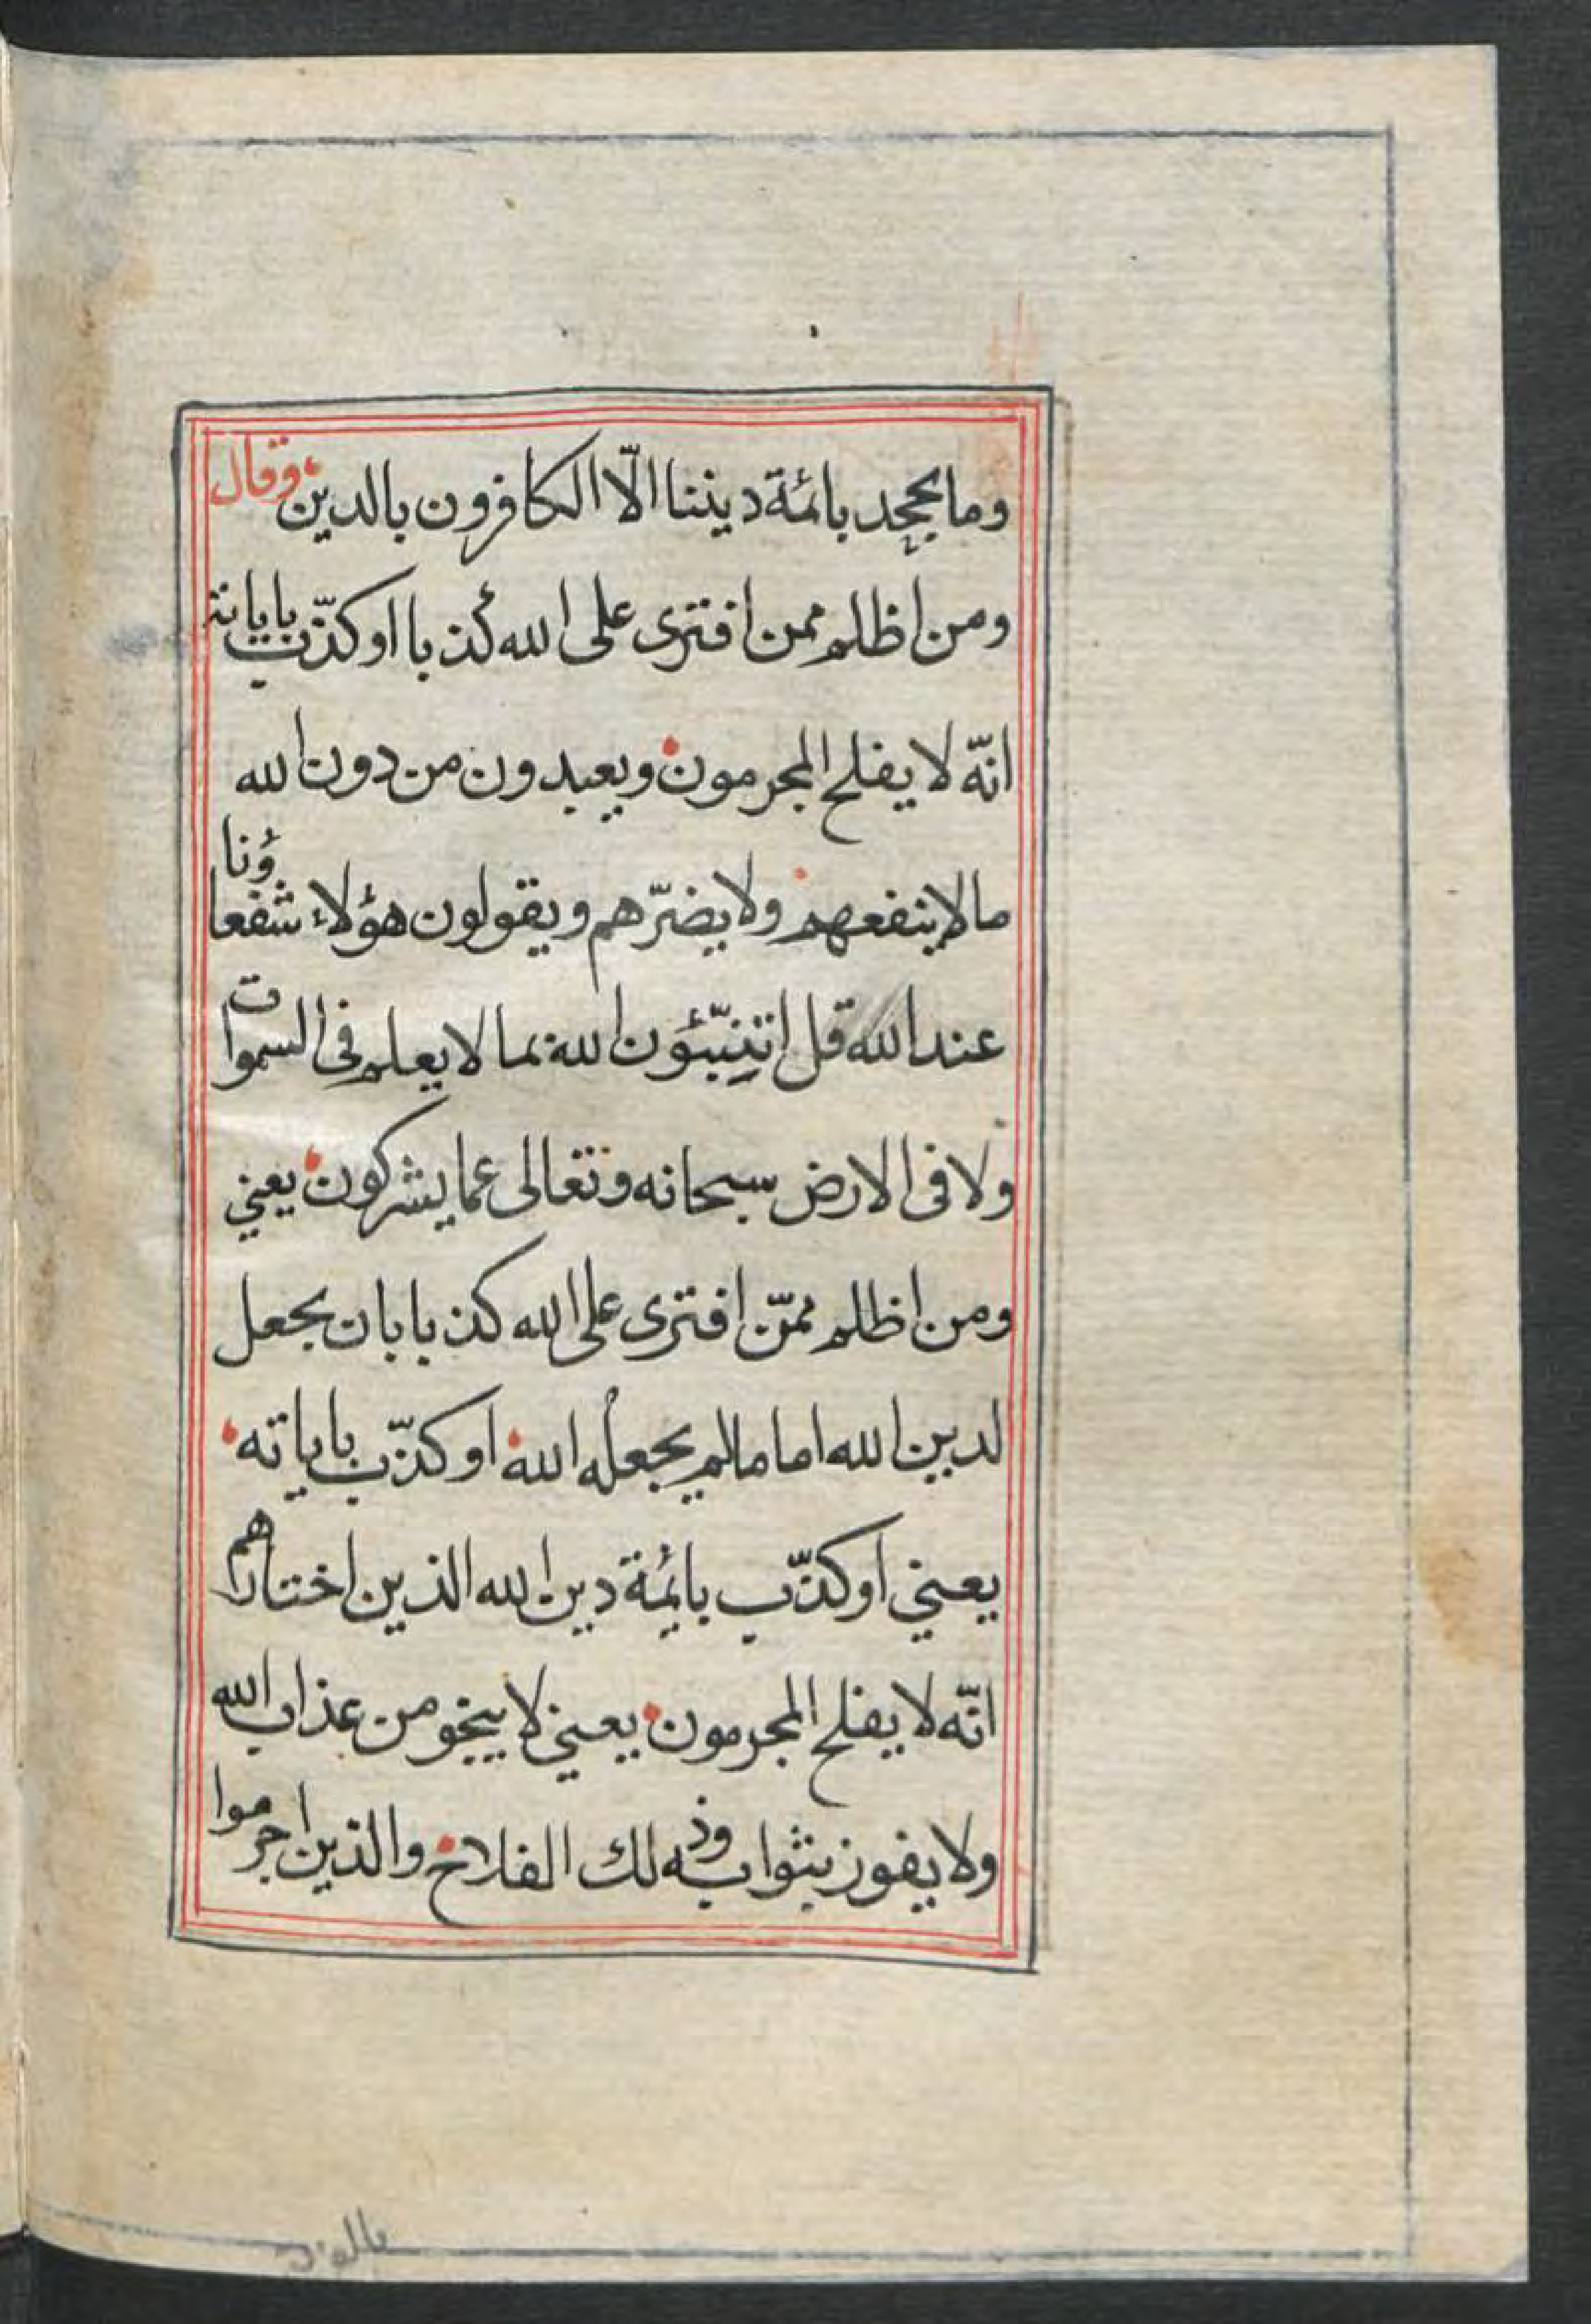 وما يجحد بائمة ديننا الّا الكافرون بالدين وقال
ومن اظلم ممن افترى على الله كذبا او كذّب باياته
انّه لا يفلح المجرمون ويعبدون من دون الله
ما لا ينفعهم ولا يضرّهم ويقولون هؤلاء شفعاؤنا
عند الله قل اتنبّئون الله بما لا يعلم فى السموات
ولا فى الارض سبحانه وتعالى عما يشركون يعني
ومن اظلم ممّن افترى على الله كذبا بان يجعل
لدين الله اماما لم يجعله الله او كذّب باياته
يعني او كذّب بائمة دين الله الذين اختارهم
انّه لا يفلح المجرمون يعني لا ينجو من عذاب الله
ولا يفوز بثوابه وذلك الفلاح والذين اجرموا